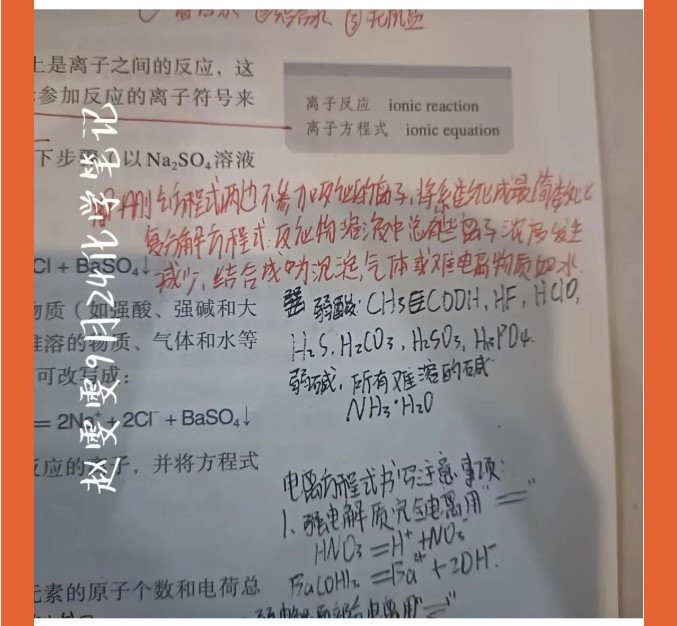 ③无机盐
上是离子之间的反应，这
参加反应的离子符号来
离子反应 ionic reaction
离子方程式 ionic equation
下步骤（以 Na₂SO₄ 溶液
方程式两边不参加反应的离子，将系数化成最简整数比
复分解方程式：反应物溶液中总有些离子浓度发生
减少，结合成为沉淀气体或难电离物质如水.
Cl + BaSO₄↓
弱酸：CH₃COOH，HF，HClO，
物质（如强酸、强碱和大
H₂S，H₂CO₃，H₂SO₃，H₃PO₄.
难溶的物质、气体和水等
可改写成：
弱碱，所有难溶的碱
NH₃·H₂O
= 2Na⁺ + 2Cl⁻ + BaSO₄↓
反应的离子，并将方程式
电离方程式书写注意事项：
1、强电解质完全电离用“=”
HNO₃ = H⁺ + NO₃⁻
元素的原子个数和电荷总
Ba(OH)₂ = Ba²⁺ + 2OH⁻.
赵雯雯9月24化学笔记